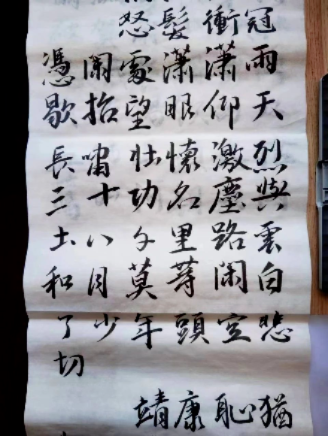 怒髮衝冠
憑闌處瀟瀟雨
歇抬望眼仰天
長嘯壯懷激烈
三十功名塵與
土八千里路雲
和月莫等閑白
了少年頭空悲
切
靖康恥猶